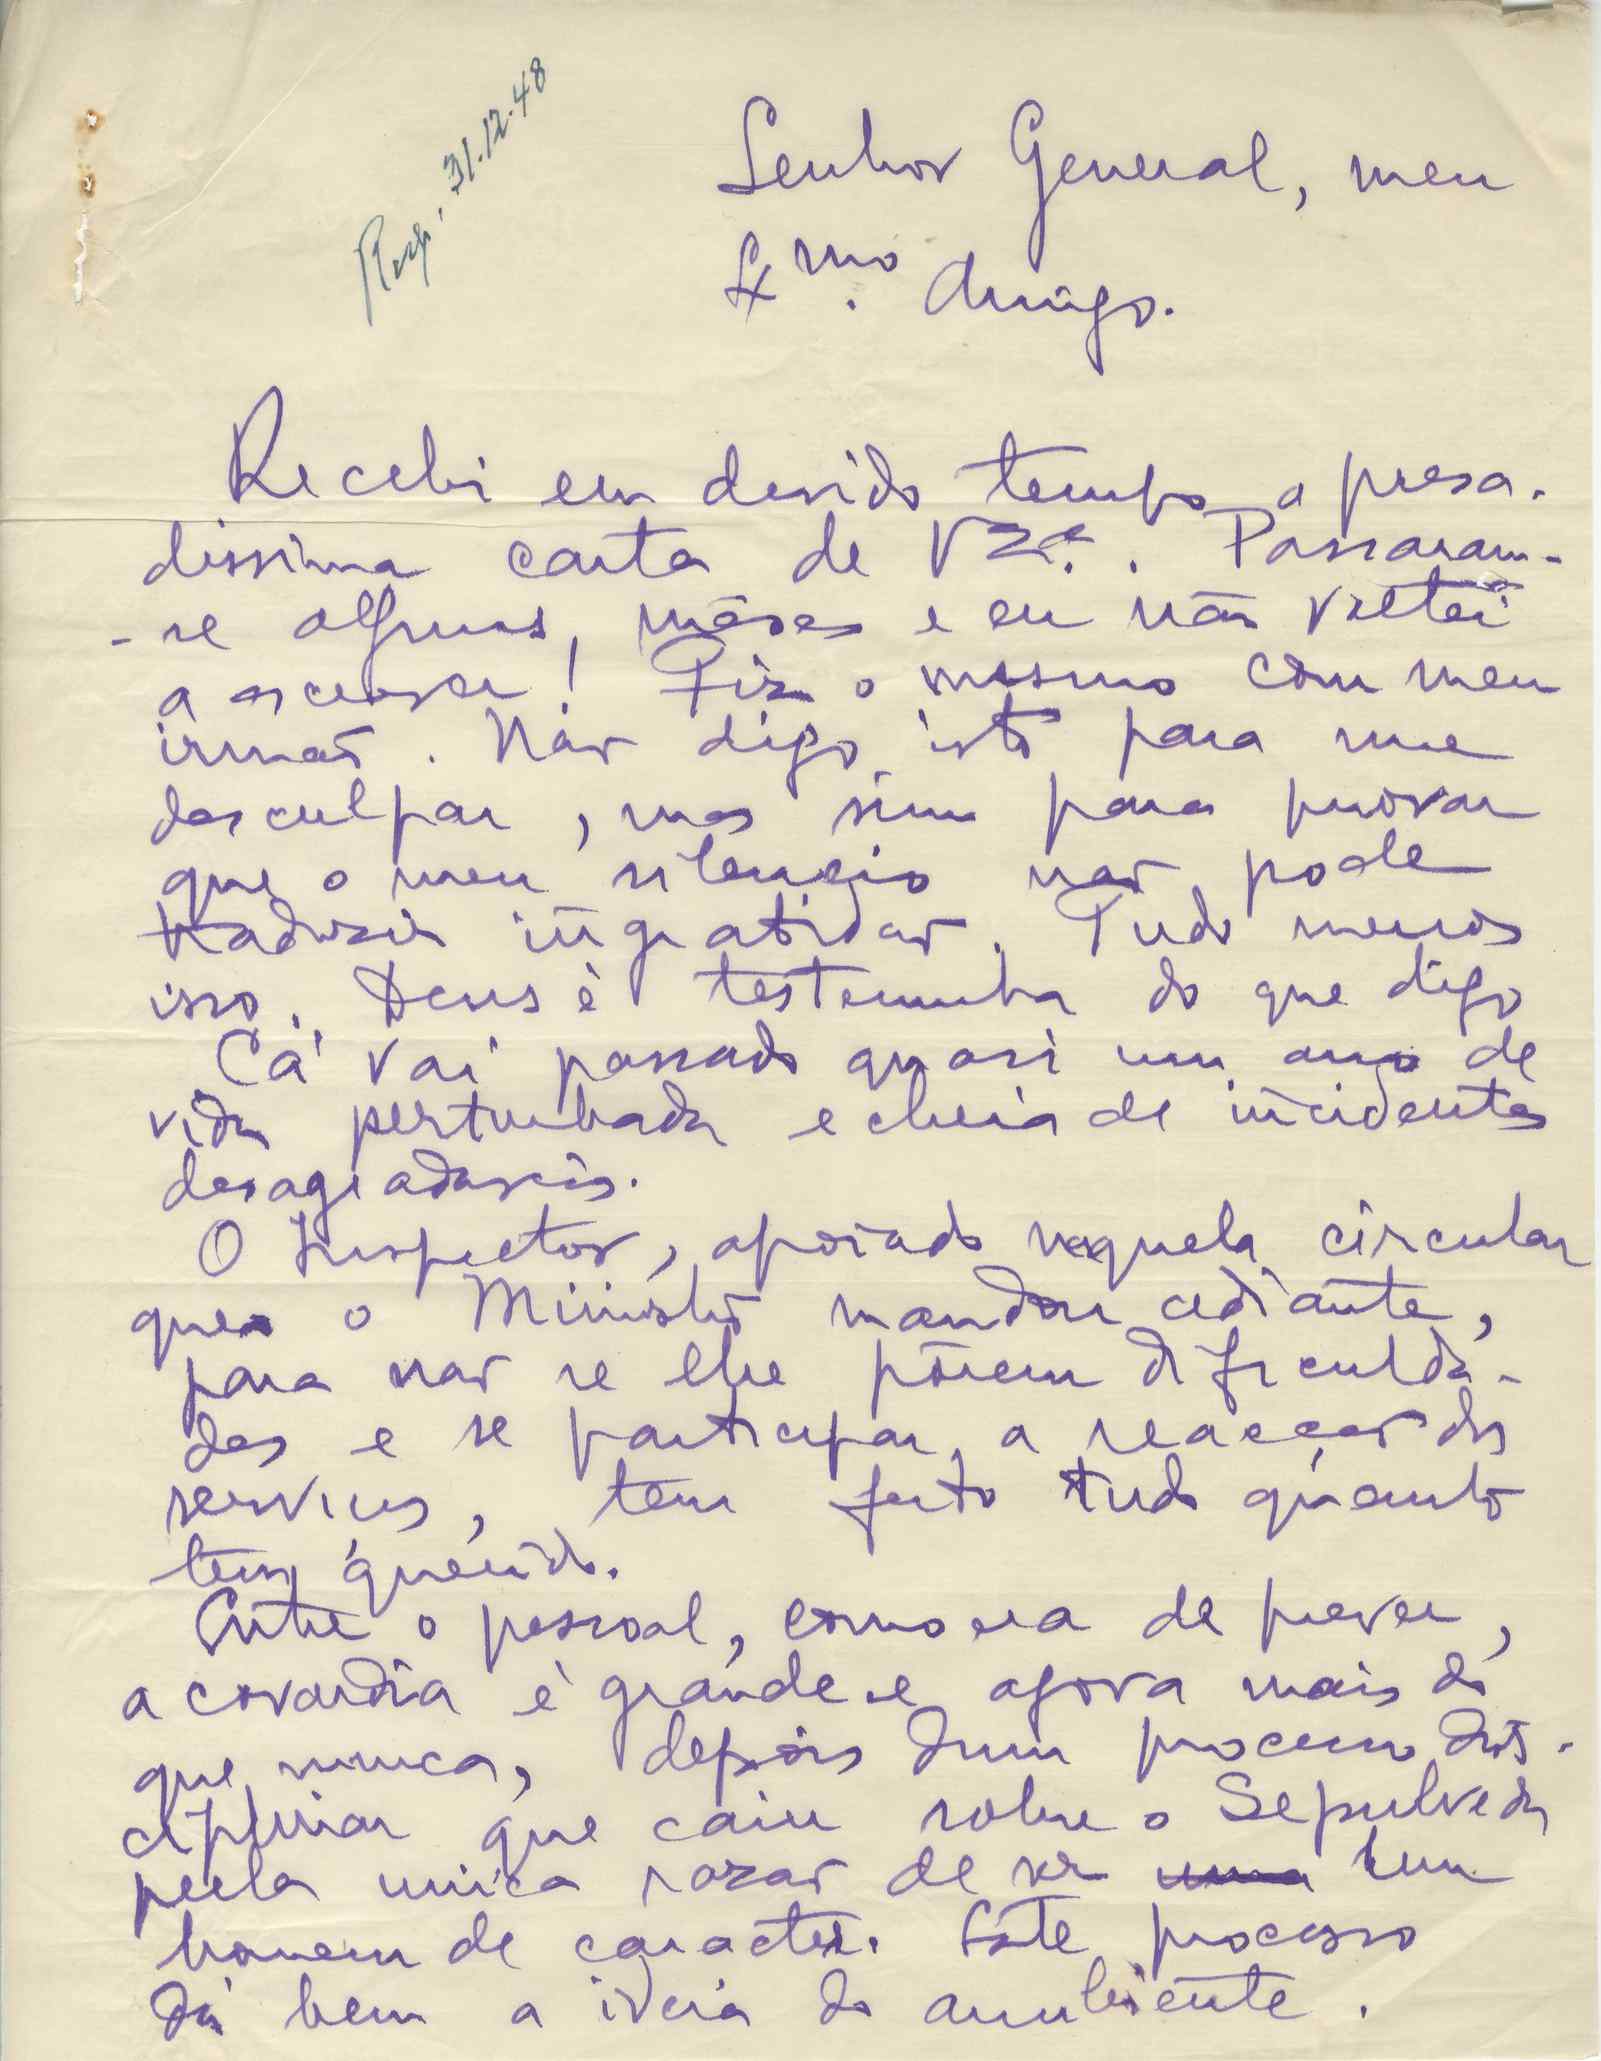 Resp. 31.12.48
Senhor General, meu
Exmo. Amigo.
Recebi em devido tempo a presa-
dissima carta de V Exª. . Passaram-
-se alguns, mêses e eu não voltei
a escrever! Fiz o mesmo com meu
irmão. Não digo isto para me
desculpar, mas sim para provar
que o meu silencio não pode
traduzir ingratidão. Tudo menos
isso. Deus é testemunha do que digo
Cá vai passado quasi um ano de
vida perturbada e cheia de incidentes
desagradaveis.
O Inspector, apoiado naquela circular
que o Ministro mandou adiante,
para não se lhe pôrem dificulda-
des e se participar a reacção dos
serviços, tem feito tudo quanto
tem querido.
Entre o pessoal, como era de prever,
a covardia é grande e agora mais do
que nunca, depois dum processo dis-
ciplinar que caiu sobre o Sepulveda
pela unica razão de ser uma um
homem de caracter. Este processo
dá bem a ideia do ambiente.